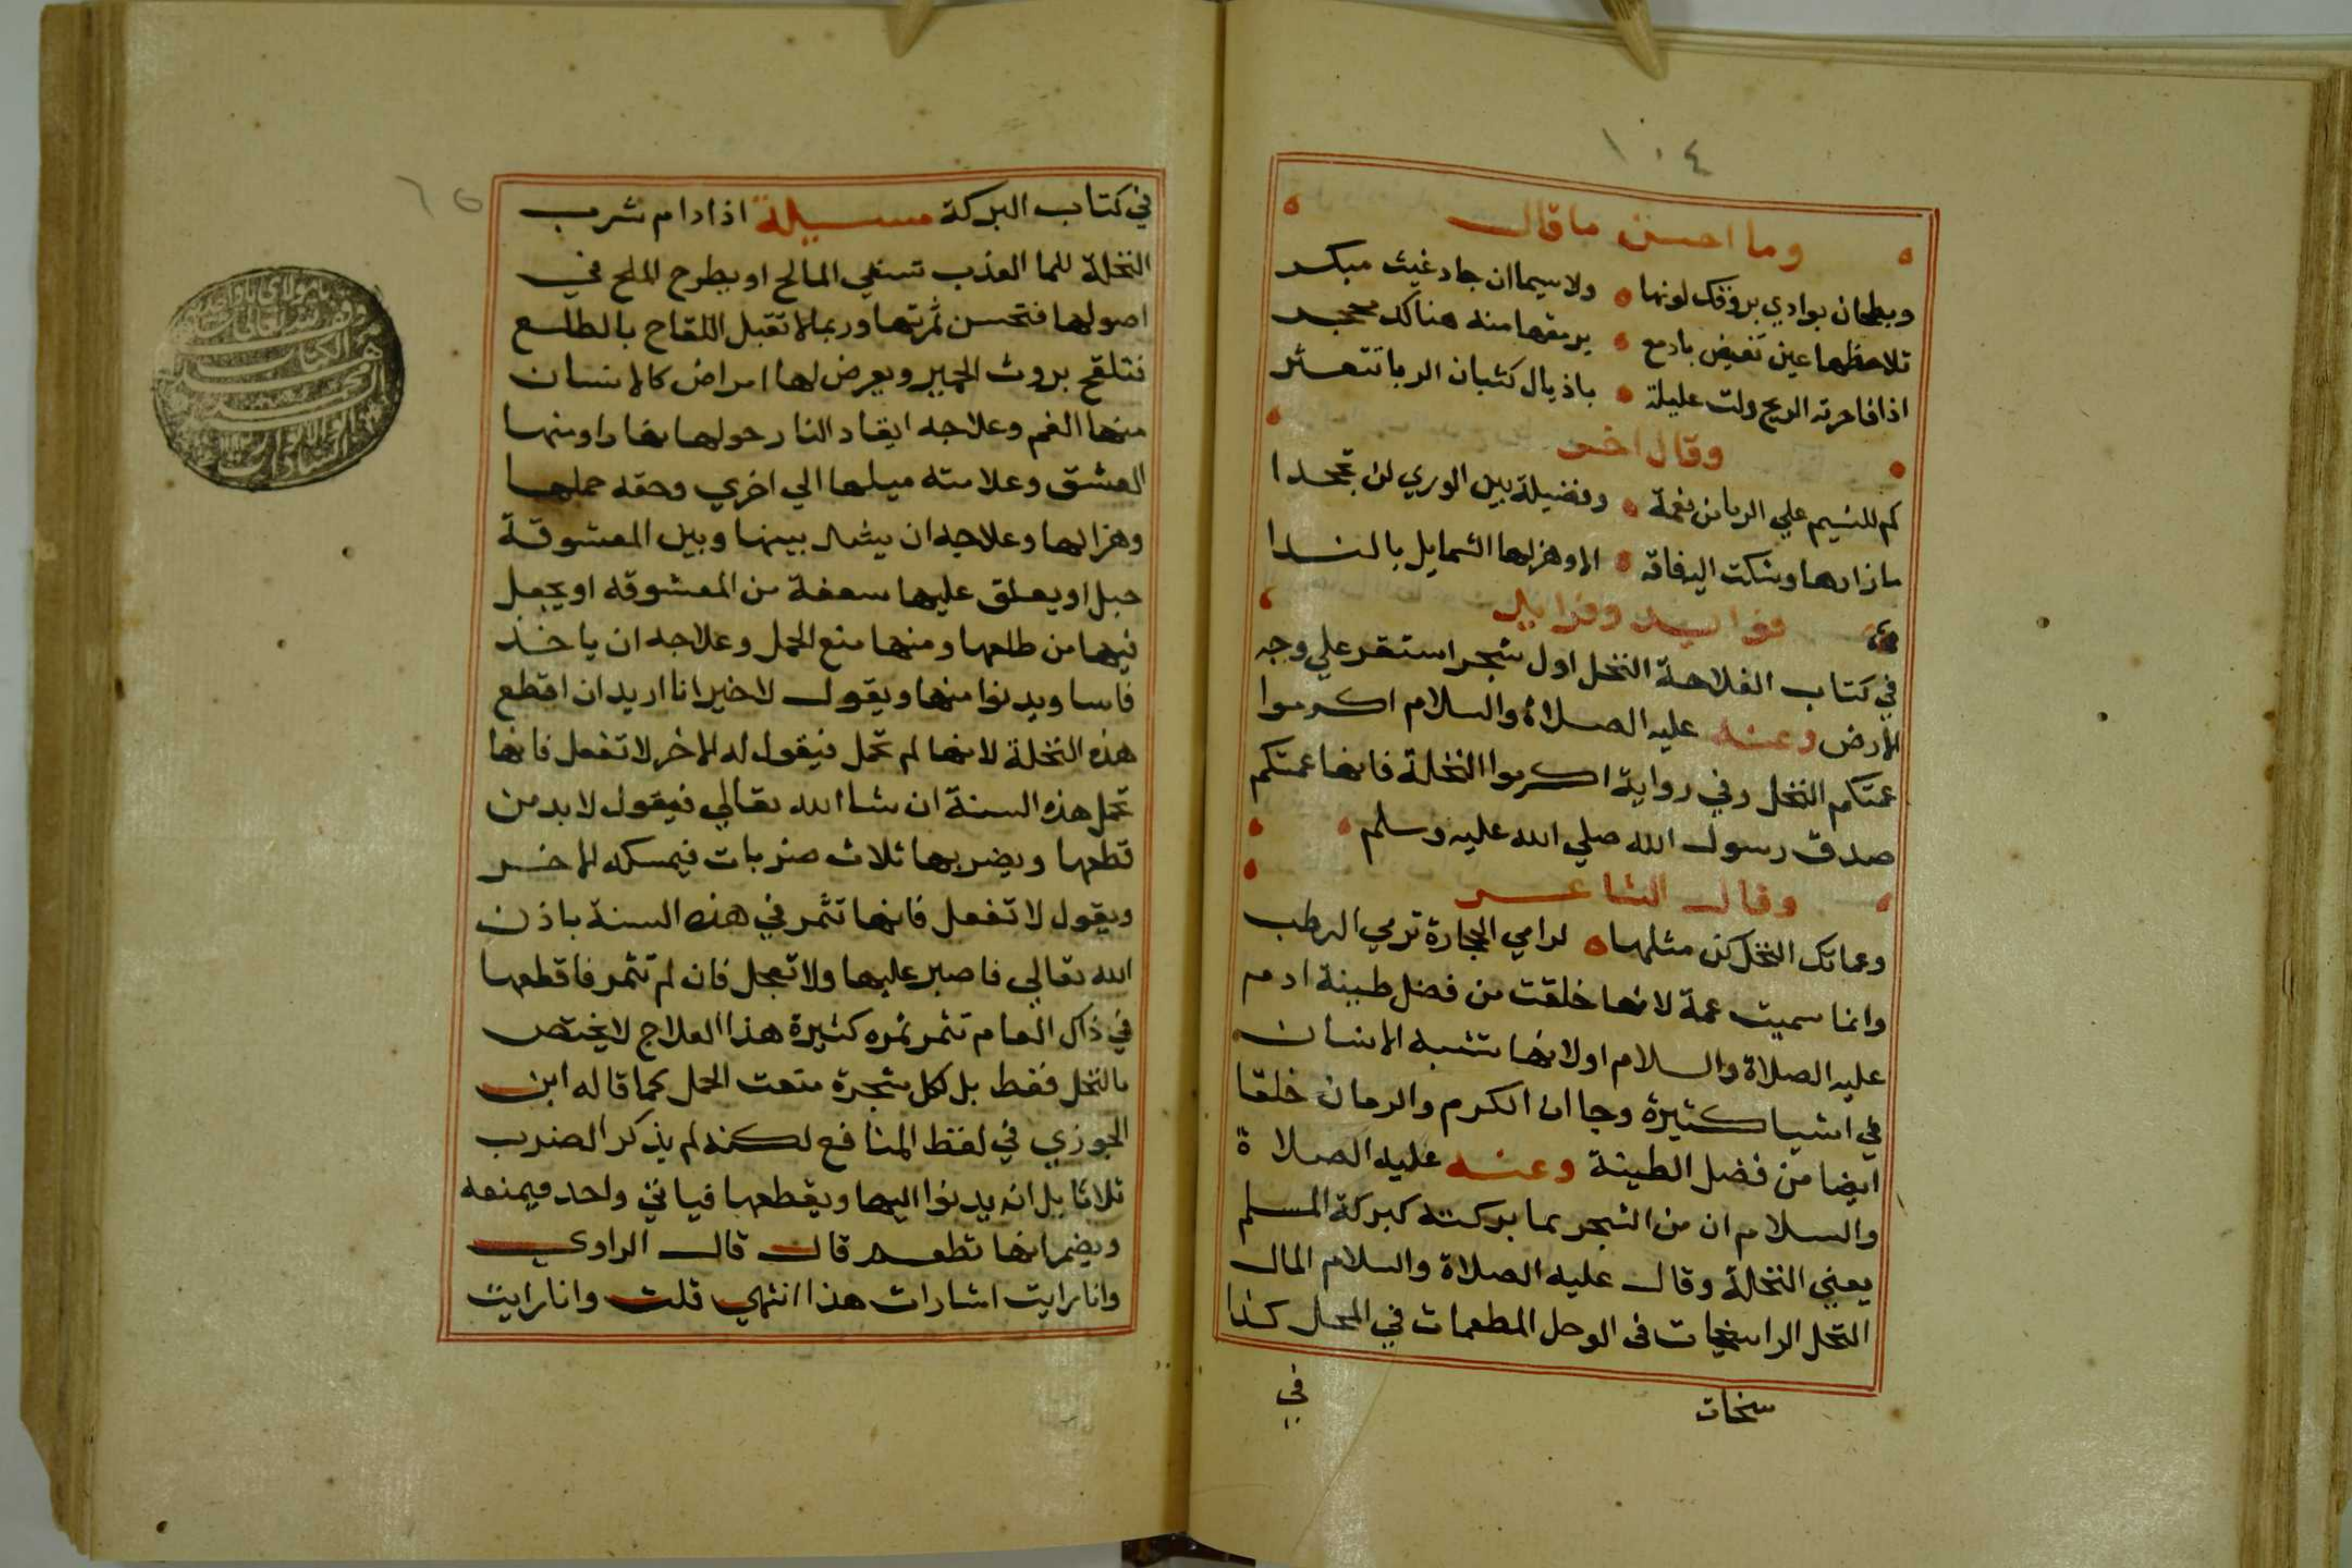 ١٠٤
وما احسن ما قال
وبطحان بوادي بروقك لونها ولاسيما ان جاد غيث مبكر
تلاحظها عين تفيض بادمع يرمقها منه هناك محجر
اذا فاخرته الريح ولت عليلة باذيال كثبان الربا تتعثر
وقال اخر
كم للنسيم علي الربا من نعمة وفضيلة بين الوري لن تجحدا
ما زارها وشكت اليه فاقة الا وهز لها الشمايل بالندا
فوايد وفرايد
في كتاب الفلاحة النخل اول شجر استقر علي وجه
الارض وعنه عليه الصلاة والسلام اكرموا
عمتكم النخل وفي رواية اكرموا النخلة فانها عمتكم
صدق رسول الله صلي الله عليه وسلم
وقال الشاعر
وعماتك النخل كن مثلها لرامي الحجارة ترمي الرطب
وانما سميت عمة لانها خلقت من فضل طينة ادم
عليه الصلاة والسلام اولانها تشبه الانسان
في اشيا كثيرة وجا ان الكرم والرمان خلقا
ايضا من فضل الطينة وعنه عليه الصلاة
والسلام ان من الشجر بما بركته كبركة المسلم
يعني النخلة وقال عليه الصلاة والسلام المال
النخل الراسخات في الوحل المطعمات في المحل كذا
سخات
في
٦٥
في كتاب البركة مسيلة اذا دام شرب
النخلة للما العذب تسقي المالح او يطرح الملح في
اصولها فتحسن ثمرتها وربما لا تقبل اللقاح بالطلع
فتلقح بروث الحمير ويعرض لها امراض كالانسان
منها الغم وعلاجه ايقاد النار حولها نهارا ومنها
العشق وعلامته ميلها الي اخري وحقه حملها
وهزالها وعلاجه ان يشد بينها وبين المعشوقة
حبل او يعلق عليها سعفة من المعشوقه او يجعل
فيها من طلعها ومنها منع الحمل وعلاجه ان ياخذ
فاسا ويدنوا منها ويقول لاخير انا اريد ان اقطع
هذه النخلة لانها لم تحمل فيقول له الاخر لا تفعل فانها
تحمل هذه السنة ان شا الله تعالي فيقول لا بد من
قطعها ويضربها ثلاث ضربات فيمسكه الاخر
ويقول لا تفعل فانها تثمر في هذه السنة باذن
الله تعالي فاصبر عليها ولا تعجل فان لم تثمر فاقطعها
في ذاك العام تثمر ثمره كثيرة هذا العلاج لا يختص
بالنخل فقط بل لكل شجرة منعت الحمل كما قاله ابن
الجوزي في لقط المنافع لكنه لم يذكر الضرب
ثلاثا بل انه يدنوا اليها ويقطعها فياتي واحد فيمنعه
ويضمر انها تطعم قال قال الراوي
وانا رايت اشارات هذا انتهي قلت وانا رايت